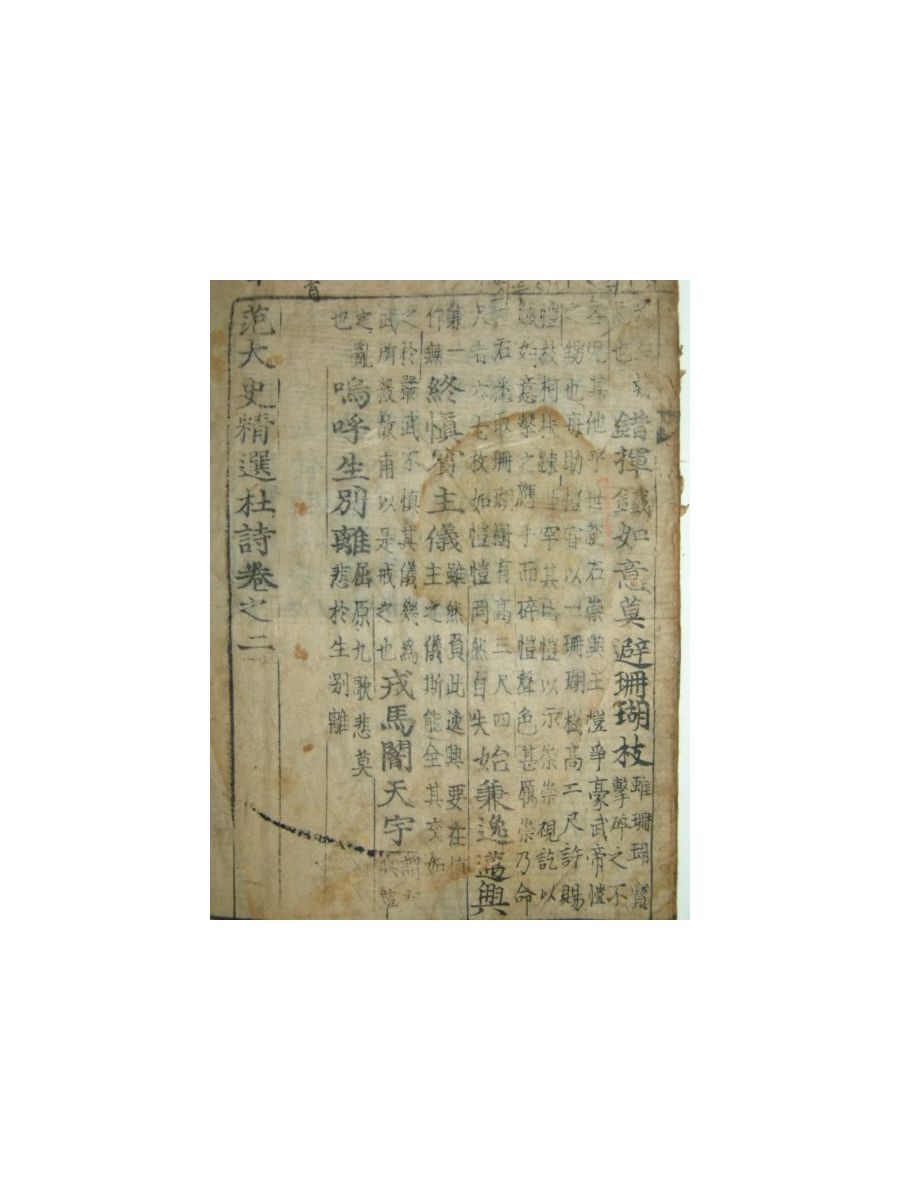 錯揮鐵如意莫避珊瑚枝
雖珊瑚寶
擊碎之不
吝况其他乎世說石崇與王愷爭豪武帝愷
之甥也每助愷甞以一珊瑚樹高二尺許賜
愷枝柯扶踈世罕其比愷以示崇崇視訖以
鐵如意擊之應手而碎愷聲色甚厲崇乃命
左右悉取珊瑚樹有高三尺四
尺者六七枚如愷愷罔然自失
始兼逸邁興
兼一
作無
終愼賓主儀
雖然負此逸興要在愼
主之儀斯能全其交如
之於嚴武不慎其儀幾爲
武所殺故甫以是戒之也
戎馬闇天宇
定亂
也
嗚呼生別離
屈原九歌悲莫
悲於生别離
范大史精選杜詩卷之二